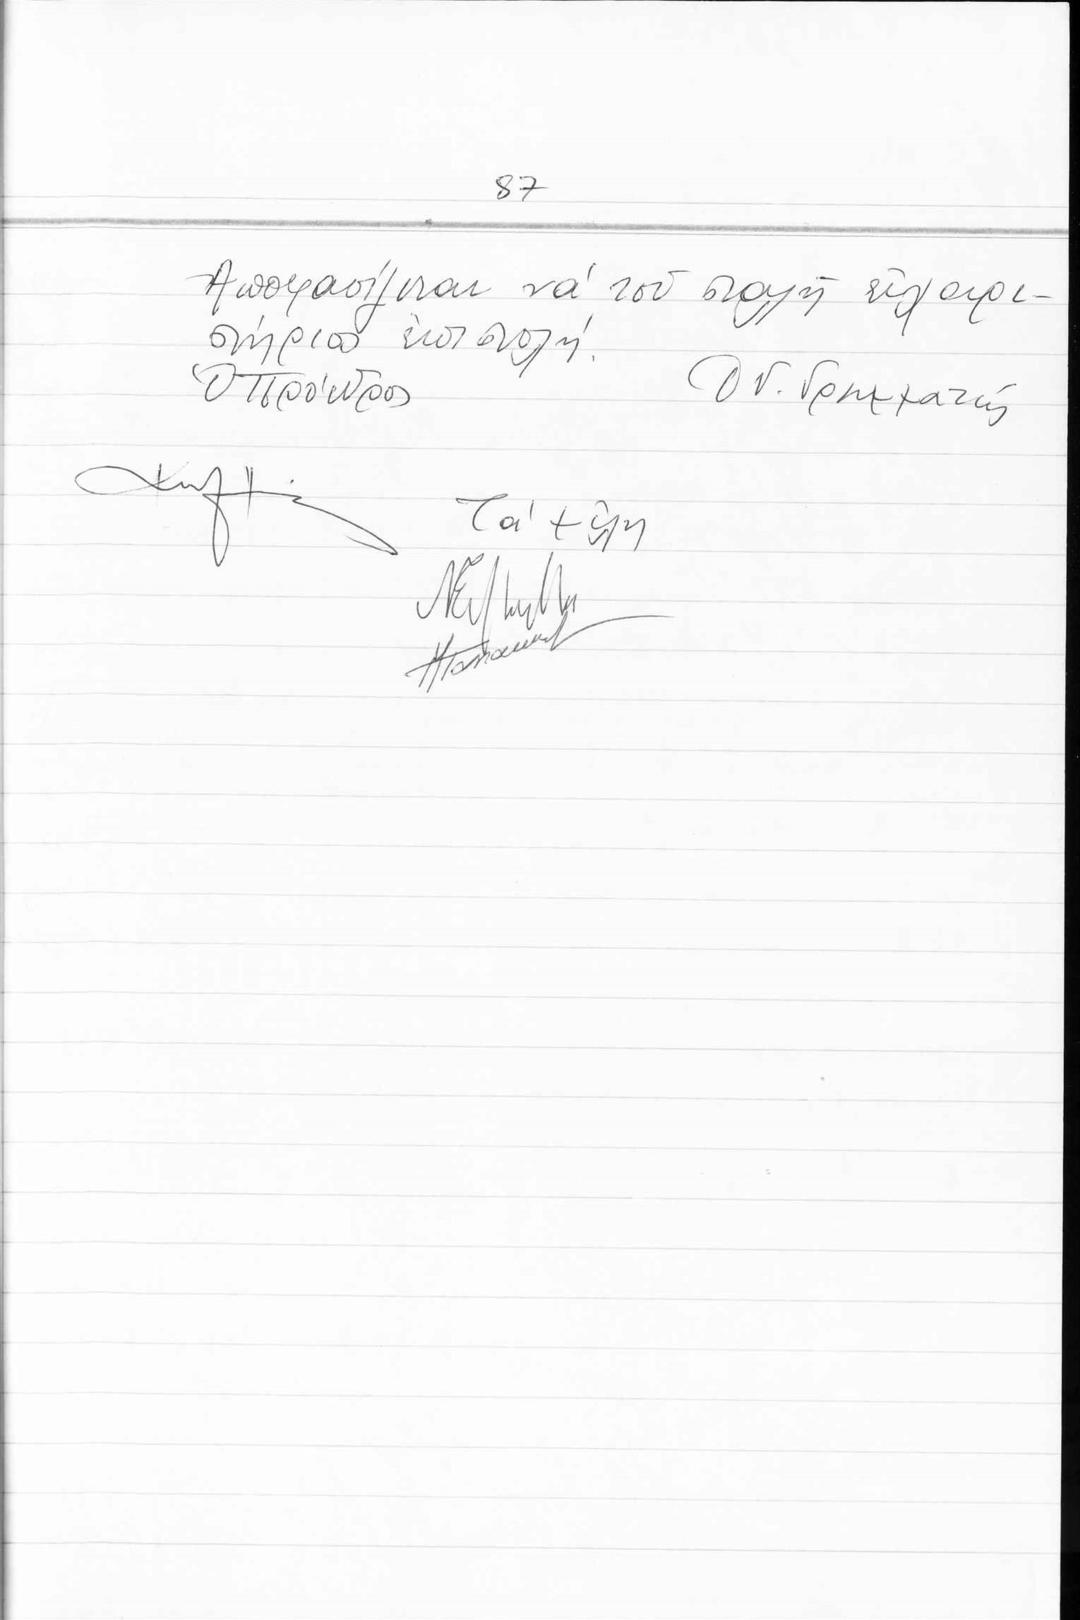 87
Ἀποφασίζεται νά τοῦ σταλῆ εὐχαρι-
στήριος ἐπιστολή.
Ὁ Πρόεδρος
Ὁ Γ. Γραμματεύς
Τά μέλη